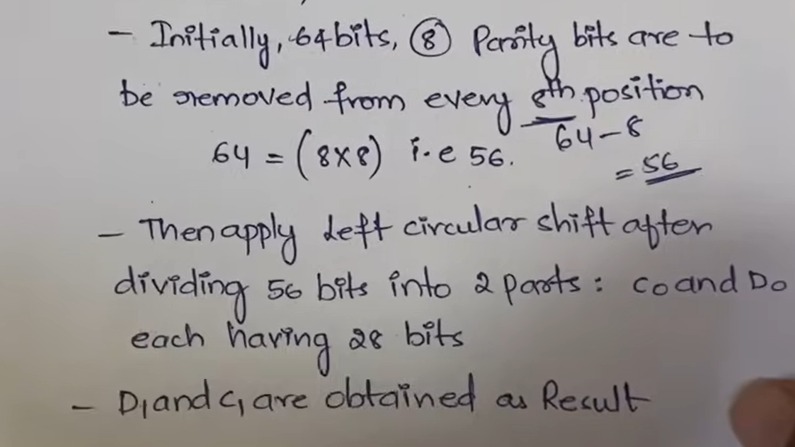 - Initially, 64 bits, 8 Parity bits are to
be removed from every 8th position
64 = (8x8) i.e 56. 64-8
= 56
- Then apply Left circular shift after
dividing 56 bits into 2 parts: C0 and D0
each having 28 bits
- D1 and C1 are obtained as Result